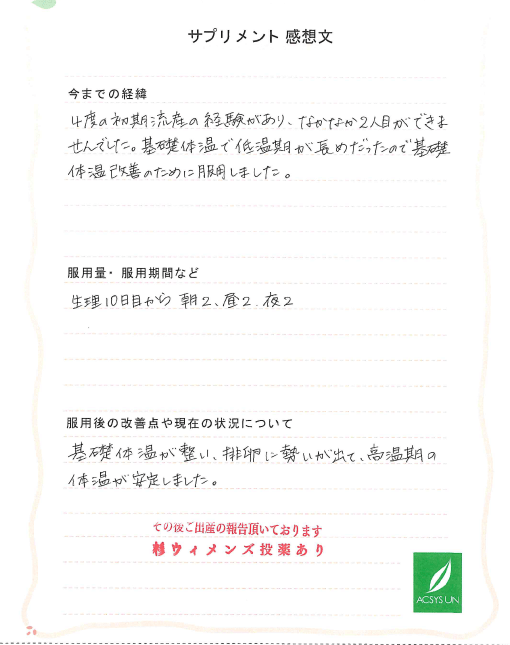 サプリメント 感想文
今までの経緯
4度の初期流産の経験があり、なかなか2人目ができま
せんでした。基礎体温で低温期が長めだったので基礎
体温改善のために服用しました。
服用量・服用期間など
生理10日目から 朝2、昼2、夜2
服用後の改善点や現在の状況について
基礎体温が整い、排卵に勢いが出て、高温期の
体温が安定しました。
その後ご出産の報告頂いております
杉ウィメンズ投薬あり
ACSYSUN